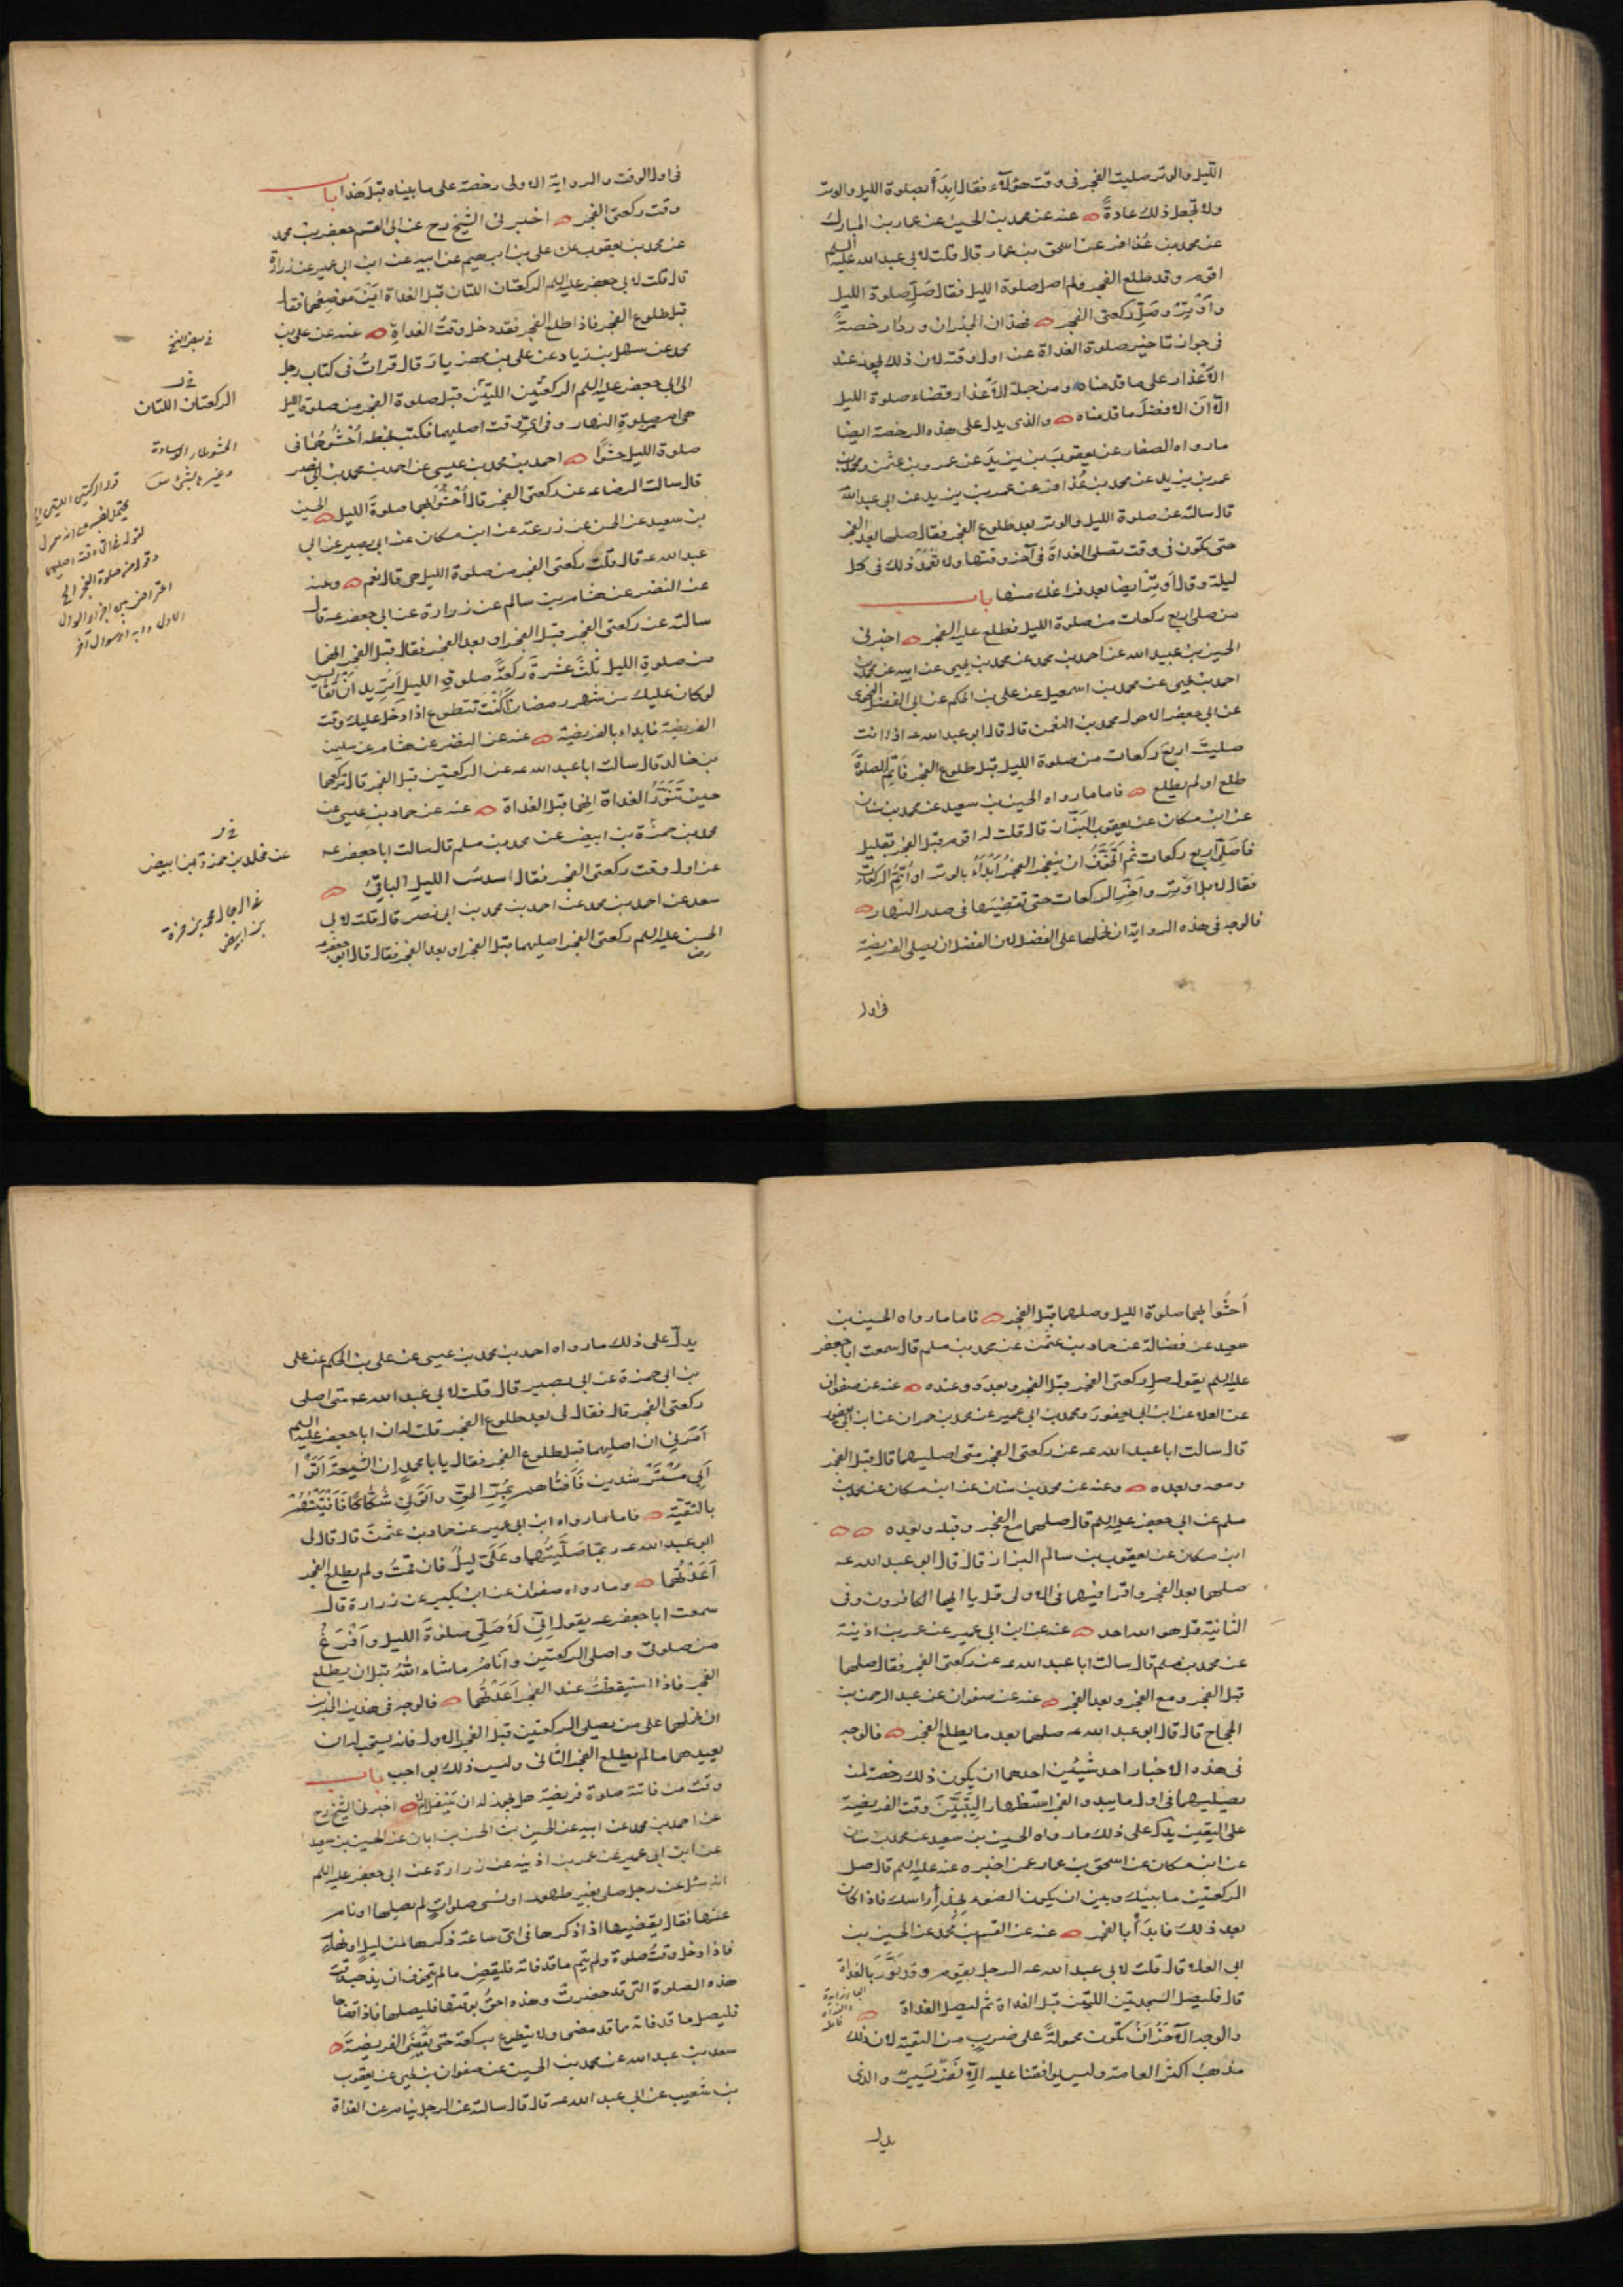 الليل والوتر صليت الفجر فى وقت هؤلآء فقال اِبدَأ بصلوة الليل والوتر
ولا تجعل ذلك عادةً عنه عن محمد بن الحسين عن عمار بن المبارك
عن محمد بن عُذافر عن اسحق بن عمار قال قلت لابى عبد الله عليه السلم
اقوم وقد طلع الفجر ولم اصل صلوة الليل فقال صَلّ صلوة الليل
وأوتِرْ وصَلّ ركعتى الفجر فهذان الخبران وردا رخصةً
فى جواز تاخير صلوة الغداة عن اول وقته لان ذلك يجوز عند
الأعْذار على ما قدمناه ومن جملة الأعْذار قضاء صلوة الليل
الّا انّ الافضل ما قدمناه والذى يدل على هذه الرخصة ايضا
ما رواه الصفار عن يعقوب بن يزيد عن عمرو بن عثمن ومحمد بن
عمر بن يزيد عن محمد بن عُذافر عن عمر بن يزيد عن ابى عبد الله
قال سالته عن صلوة الليل والوتر بعد طلوع الفجر فقال صلها بعد الفجر
حتى يكون فى وقت تصلى الغداة فى آخر وقتها ولا تعمّد ذلك فى كل
ليلة وقال اَوتِرْ ايضا بعد فراغك منها باب
من صلى اربع ركعات من صلوة الليل فطلع عليه الفجر اخبرنى
الحسين بن عبيد الله عن احمد بن محمد عن محمد بن يحيى عن ابيه عن محمد بن
احمد بن يحيى عن محمد بن اسمعيل عن على بن الحكم عن ابى الفضل النحوى
عن ابى جعفر الاحول محمد بن النعمن قال قال ابو عبد الله عه اذا انت
صليتَ اربعَ ركعات من صلوة الليل قبل طلوع الفجر فَاتِمّ الصلوةَ
طلع او لم يطلع فاما ما رواه الحسين بن سعيد عن محمد بن سنان
عن ابن مسكان عن يعقوب البزّاز قال قلت له اقوم قبل الفجر بقليل
فاُصَلّى اربع ركعات ثم اَتخوّفُ ان ينفجر الفجرُ اَبْدَأُ بالوتر او اُتِمُّ الركعات
فقال لا بل اَوتِرْ واَخّر الركعات حتى تقضيَها فى صدر النهار
فالوجه فى هذه الرواية ان نحملها على الفضل لان الفضل ان يصلى الفريضة
فى اول
فى اول الوقت والرواية الاولى رخصة على ما بيناه قبل هذا باب
وقت ركعتى الفجر اخبرنى الشيخ رح عن ابى القسم جعفر بن محمد
عن محمد بن يعقوب عن على بن ابرهيم عن ابيه عن ابن ابى عمير عن زرارة
قال قلت لابى جعفر عليه السلم الركعتان اللتان قبل الغداة اَينَ موضِعُهما فقال
قبل طلوع الفجر فاذا طلع الفجر فقد دخل وقتُ الغداةِ عنه عن على بن
محمد عن سهل بن زياد عن على بن مهزيار قال قرأتُ فى كتاب رجل
الى ابى جعفر عليه السلم الركعتين اللتين قبل صلوة الفجر من صلوة الليل
هى ام من صلوة النهار وفى اىّ وقت اصليهما فكتب بخطه اُحْشُوهُما فى
صلوة الليل حشوًا احمد بن محمد بن عيسى عن احمد بن محمد بن ابى نصر
قال سالت الرضا عه عن ركعتى الفجر قال اُحْشُوْا بهما صلوةَ الليل الحسين
بن سعيد عن الحسن عن زرعة عن ابن مسكان عن ابى بصير عن ابى
عبد الله عه قال قلت ركعتى الفجر من صلوة الليل هى قال نعم وعنه
عن النضر عن هشام بن سالم عن زرارة عن ابى جعفر عه قال
سالته عن ركعتى الفجر قبل الفجر او بعد الفجر فقال قبل الفجر انهما
من صلوةِ الليل ثلثَ عَشْرةَ ركعةً صلوةِ الليل اَتُرِيد انْ تُقَايس
لو كان عليك من شهر رمضان اَكُنْتَ تتطوع اذا دخل عليك وقت
الفريضة فابداء بالفريضة عنه عن النضر عن هشام عن سليمن
بن خالد قال سالت ابا عبد الله عه عن الركعتين قبل الفجر قال تركعهما
حين تَنَوّرُ الغداة انهما قبل الغداة عنه عن حماد بن عيسى عن
محمد بن حمزة بن ابيض عن محمد بن مسلم قال سالت ابا جعفر عه
عن اول وقت ركعتى الفجر فقال سدسُ الليلِ الباقىُ
سعد عن احمد بن محمد عن احمد بن محمد بن ابى نصر قال قلت لابى
الحسن عليه السلم ركعتى الفجر اصليهما قبل الفجر او بعد الفجر فقال قال ابو جعفر عه
فى بعض النسخ
الركعتان اللتان
عن محمد بن حمزة بن ابيض
اَحشُوا بهما صلوة الليل وصلهما قبل الفجر فاما ما رواه الحسين بن
سعيد عن فضالة عن حماد بن عثمن عن محمد بن مسلم قال سمعت ابا جعفر
عليه السلم يقول صل ركعتى الفجر قبل الفجر وبعدَه وعنده عنه عن صفوان
عن العلاء عن ابن ابى يعفور ومحمد بن ابى عمير عن محمد بن حمران عن ابن ابى يعفور
قال سالت ابا عبد الله عه عن ركعتى الفجر متى اصليهما قال قبل الفجر
ومعه وبعده وعنه عن محمد بن سنان عن ابن مسكان عن محمد بن
مسلم عن ابى جعفر عليه السلم قال صلهما مع الفجر وقبله وبعده
ابن مسكان عن يعقوب بن سالم البزاز قال قال ابو عبد الله عه
صلهما بعد الفجر واقرا فيهما فى الاولى قل يا ايها الكافرون وفى
الثانية قل هو الله احد عنه عن ابن ابى عمير عن عمر بن اذينة
عن محمد بن مسلم قال سالت ابا عبد الله عه عن ركعتى الفجر فقال صلهما
قبل الفجر ومع الفجر وبعد الفجر عنه عن صفوان عن عبد الرحمن بن
الحجاج قال قال ابو عبد الله عه صلهما بعد ما يطلع الفجر فالوجه
فى هذه الاخبار احد شيئين احدهما ان يكون ذلك رخصة لمن
يصليهما فى اول ما يبدو الفجر استظهارا ليتبيّن وقت الفريضة
على اليقين يدل على ذلك ما رواه الحسين بن سعيد عن محمد بن سنان
عن ابن مسكان عن اسحق بن عمار عمن اخبره عنه عليه السلم قال صل
الركعتين ما بينك وبين ان يكون الضوء بحذاء راسك فاذا كان
بعد ذلك فابدَأ بالفجر عنه عن القسم بن محمد عن الحسين بن
ابى العلاء قال قلت لابى عبد الله عه الرجل يقوم وقد نَوّرَ بالغداة
قال فليصل السجدتين اللتين قبل الغداة ثم ليصل الغداة
والوجه الآخَر اَنْ تكون محمولةً على ضربٍ من التقية لان ذلك
مذهبُ اكثرِ العامة وليس يوافقنا عليه الّا نَفَرٌ يَسيرٌ والذى
يدل
يدلّ على ذلك ما رواه احمد بن محمد بن عيسى عن على بن الحكم عن على
بن ابى حمزة عن ابى بصير قال قلت لابى عبد الله عه متى اصلى
ركعتى الفجر قال فقال لى بعد طلوع الفجر قلت له ان ابا جعفر عليه السلم
اَمَرَنى ان اصليهما قبل طلوع الفجر فقال يا با محمد ان الشيعة اَتَوْا
اَبى مُسْتَرْشدين فاَفتاهم بمُرّ الحقِّ واَتَوْنى شُكّاكًا فَاَفْتَيْتُهُمْ
بالتقيّة فاما ما رواه ابن ابى عمير عن حماد بن عثمنَ قال قال لى
ابو عبد الله عه ربّما صَلَّيْتُهما وعَلَىّ ليلٌ فان قمتُ ولم يطلع الفجر
اَعَدْتُهما وما رواه صفوان عن ابن بكير عن زرارة قال
سمعت ابا جعفر عه يقول اِنّى لَاُصَلّى صلوةَ الليل واَفْرَغُ
من صلوتى واصلى الركعتين وأنام ما شاء اللهُ قبل ان يطلع
الفجر فاذا استيقظتُ عند الفجر اَعَدْتُهُما فالوجه فى هذين الخبرين
ان نحملهما على من يصلى الركعتين قبل الفجر الاول فانه يستحب له ان
يعيدهما ما لم يطلع الفجر الثانى وليس ذلك بواجب باب
وقت من فاتته صلوة فريضة هل يجوز له ان يتنفل ام لا اخبرنى الشيخ رح
عن احمد بن محمد عن ابيه عن الحسين بن الحسن بن ابان عن الحسين بن سعيد
عن ابن ابى عمير عن عمر بن اذينه عن زرارة عن ابى جعفر عليه السلم
انه سئل عن رجل صلى بغير طهور او نسى صلواتٍ لم يصلها او نام
عنها فقال يقضيها اذا ذكرها فى اىّ ساعة ذكرها من ليلٍ او نهار
فاذا دخل وقتُ صلوة ولم يتم ما قد فاته فليقض ما لم يتخوف ان يذهب وقت
هذه الصلوة التى قد حضرتْ وهذه احقُّ بوقتها فليصلها فاذا قضاها
فليصل ما قد فاته ما قد مضى ولا يتطوع بركعة حتى يقضِىَ الفريضةَ
سعد بن عبد الله عن محمد بن الحسين عن صفوان بن يحيى عن يعقوب
بن شعيب عن ابى عبد الله عه قال قال سالته عن الرجل ينام عن الغداة